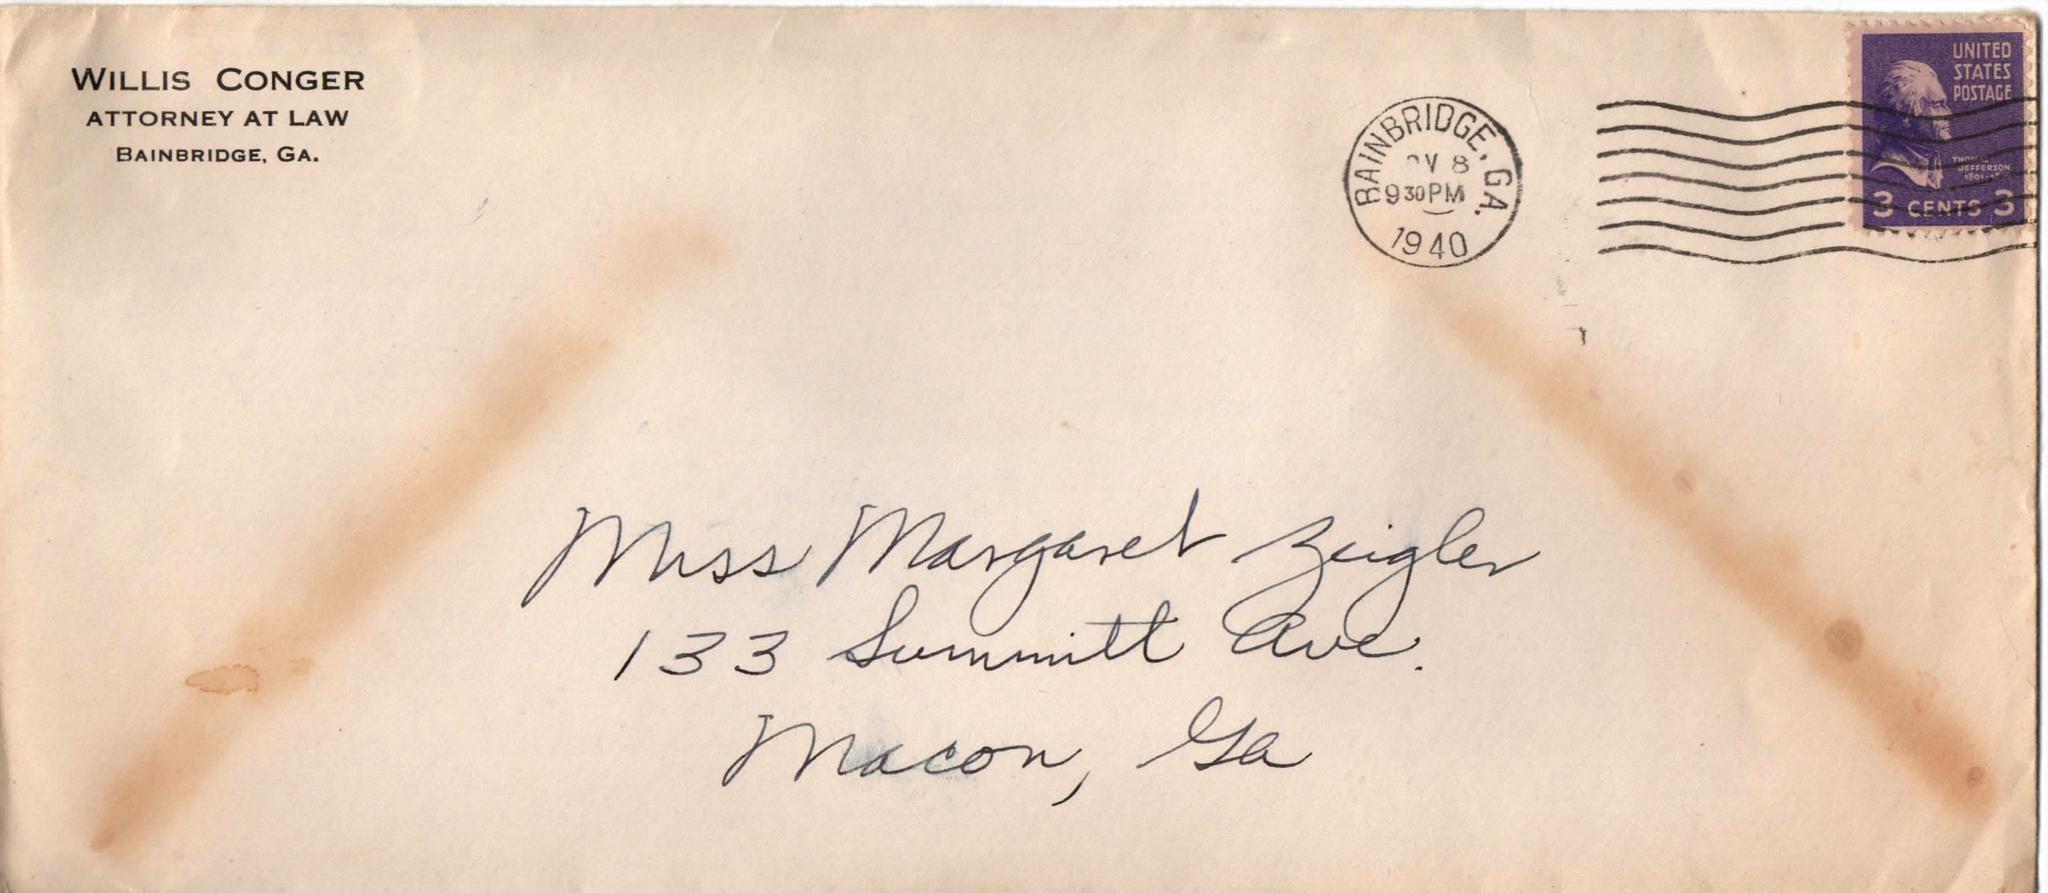 WILLIS CONGER
ATTORNEY AT LAW
BAINBRIDGE, GA.
BAINBRIDGE, GA.
8
9 30 PM
1940
UNITED
STATES
POSTAGE
JEFFERSON
3 CENTS 3
Miss Margaret Zeigler
133 Summitt Ave.
Macon, Ga